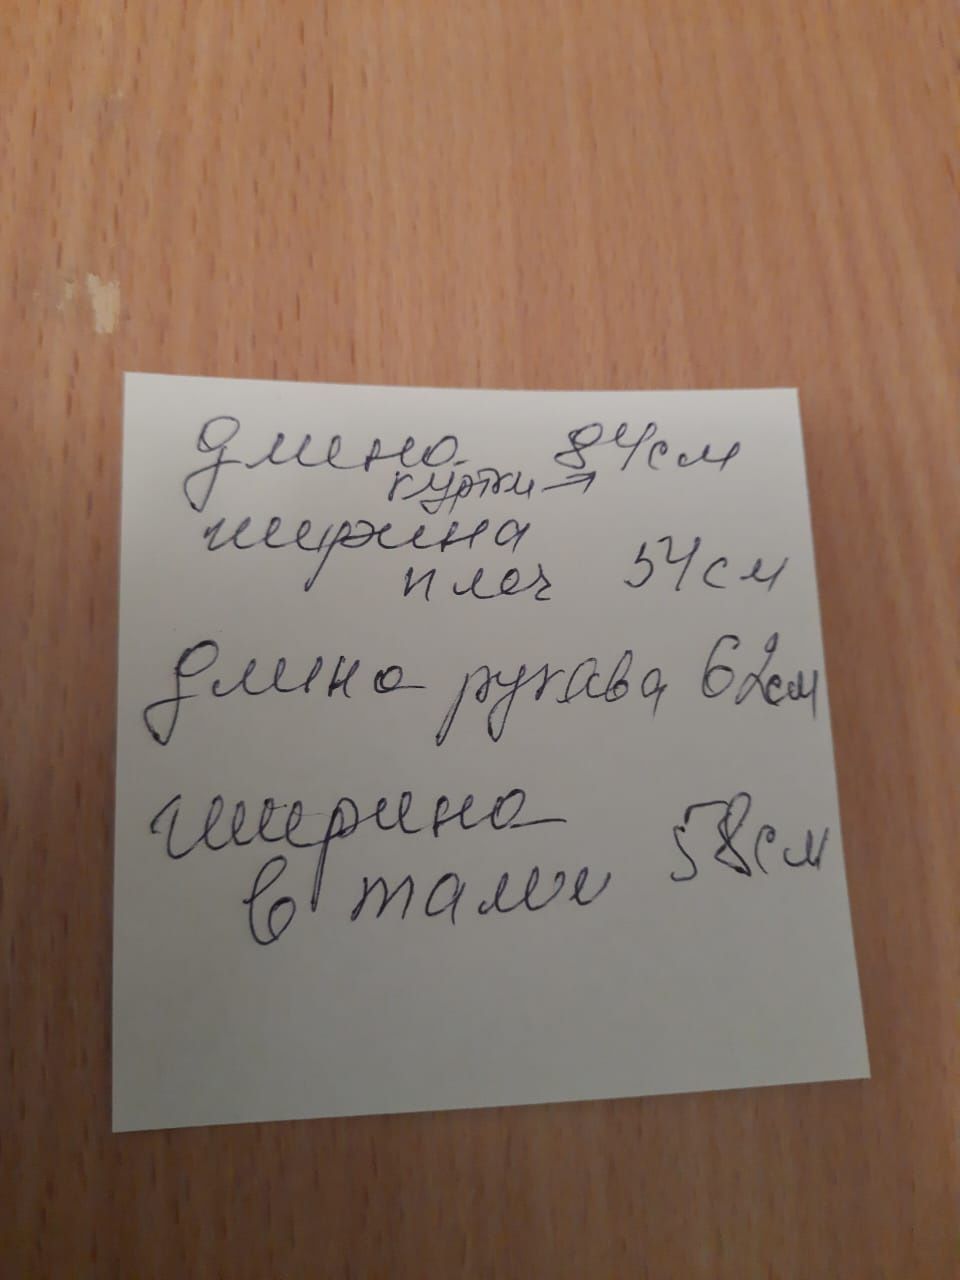 длина 84см
куртки →
ширина
плеч 54см
длина рукава 62см
ширина
в талии 58см